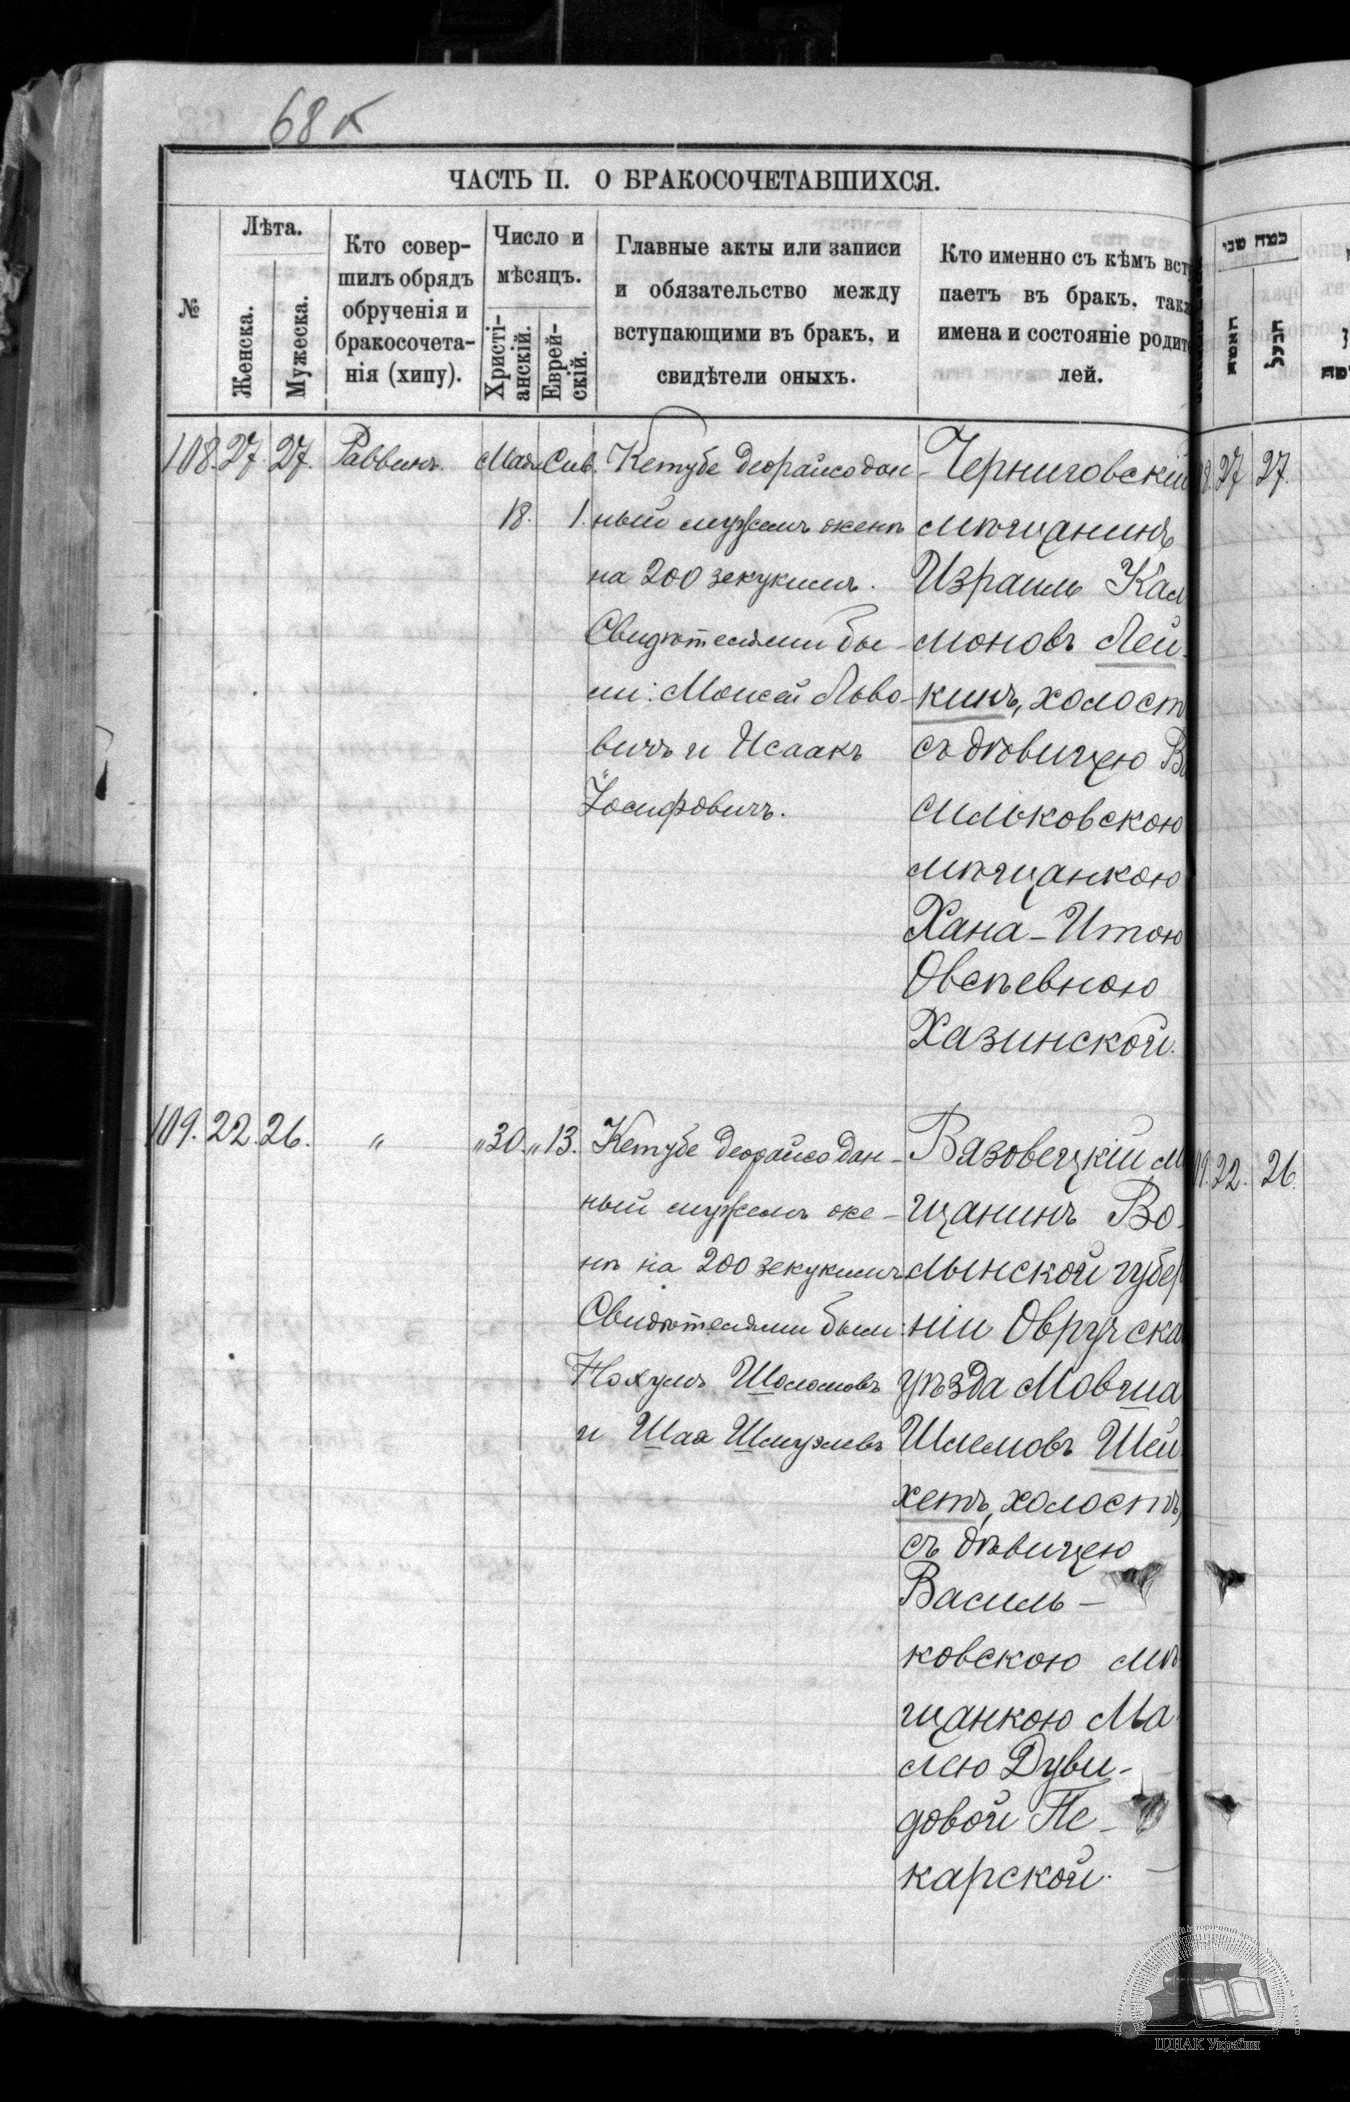 68 об
ЧАСТЬ II. О БРАКОСОЧЕТАВШИХСЯ.
№
Лѣта.
Женска.
Мужеска.
Кто совер-
шилъ обрядъ
обрученія и
бракосочета-
нія (хипу).
Число и
мѣсяцъ.
Христі-
анскій.
Еврей-
скій.
Главные акты или записи
и обязательство между
вступающими въ бракъ, и
свидѣтели оныхъ.
Кто именно съ кѣмъ всту
паетъ въ бракъ, такж
имена и состояніе родит
лей.
כמה שני
האשה
הבעל
108. 27. 27. Раввинъ. Мая Сив.
18. 1.
Кетубе деорайсо дан-
ный мужемъ женѣ
на 200 зекукимъ.
Свидѣтелями бы-
ли: Моисей Льво-
вичъ и Исаакъ
Іосифовичъ.
Черниговскій
мѣщанинъ
Израиль Кал
моновъ Лей-
кинъ, холост
съ дѣвицею Ва
сильковскою
мѣщанкою
Хана-Итою
Овсѣевною
Хазинской.
27 27.
109. 22. 26. " " 30. " 13.
Кетубе деорайсо дан-
ный мужемъ же-
нѣ на 200 зекукимъ
Свидѣтелями были:
Нохумъ Шоломовъ
и Шая Шмулевъ
Вязовецкій м
щанинъ Во-
лынской губер
ніи Овручска
уѣзда Мовша
Шлемовъ Шей
хетъ, холостъ,
съ дѣвицею
Василь-
ковскою мѣ
щанкою Ма
лею Дуви-
довой Пе-
карской.
22. 26.
ЦДІАК України